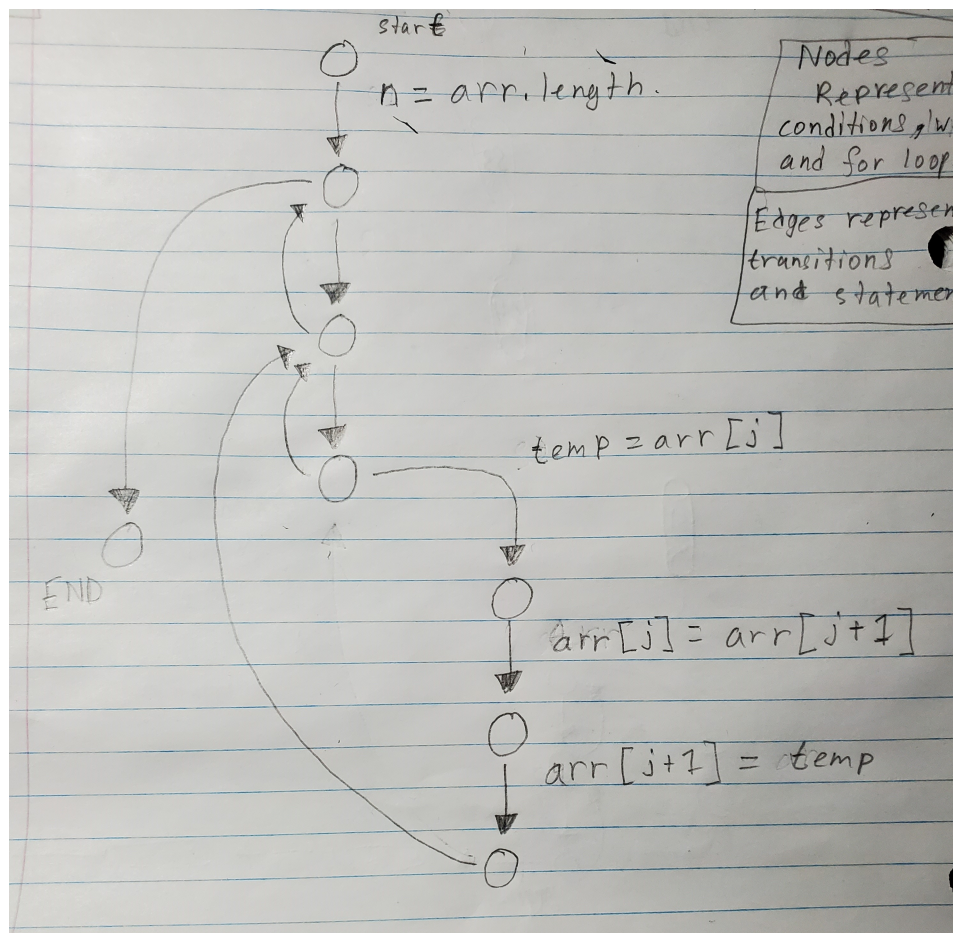 start
n = arr.length.
Nodes
Represent
conditions,
and for loop
Edges represen
transitions
and statemen
temp = arr[j]
END
arr[j] = arr[j+1]
arr[j+1] = temp